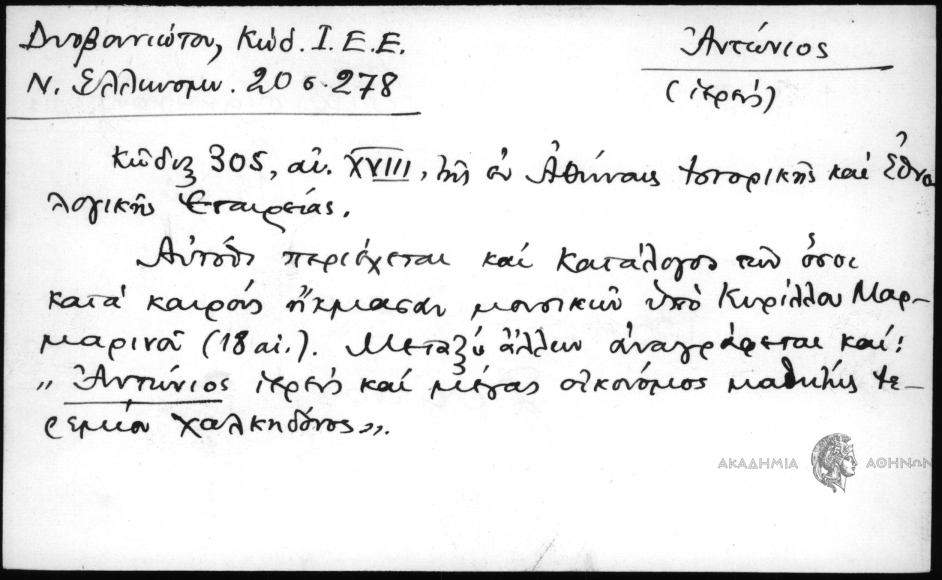 Δυοβουνιώτου, Κώδ. Ι.Ε.Ε.
Ν. Ἑλληνομν. 20 σ. 278
Ἀντώνιος
(ἱερεύς)
Κῶδιξ 305, αἰ. XVIII, τῆς ἐν Ἀθήναις Ἱστορικῆς καὶ Ἐθνο
λογικῆς Ἑταιρείας.
Αὐτόθι περιέχεται καὶ κατάλογος τῶν ὅσοι
κατὰ καιροὺς ἤκμασαν μουσικῶν ὑπὸ Κυρίλλου Μαρ-
μαρινοῦ (18 αἰ.). Μεταξὺ ἄλλων ἀναγράφεται καί:
„ Ἀντώνιος ἱερεὺς καὶ μέγας οἰκονόμος μαθητὴς Ἱε-
ρεμίου Χαλκηδόνος".
ΑΚΑΔΗΜΙΑ ΑΘΗΝΩΝ